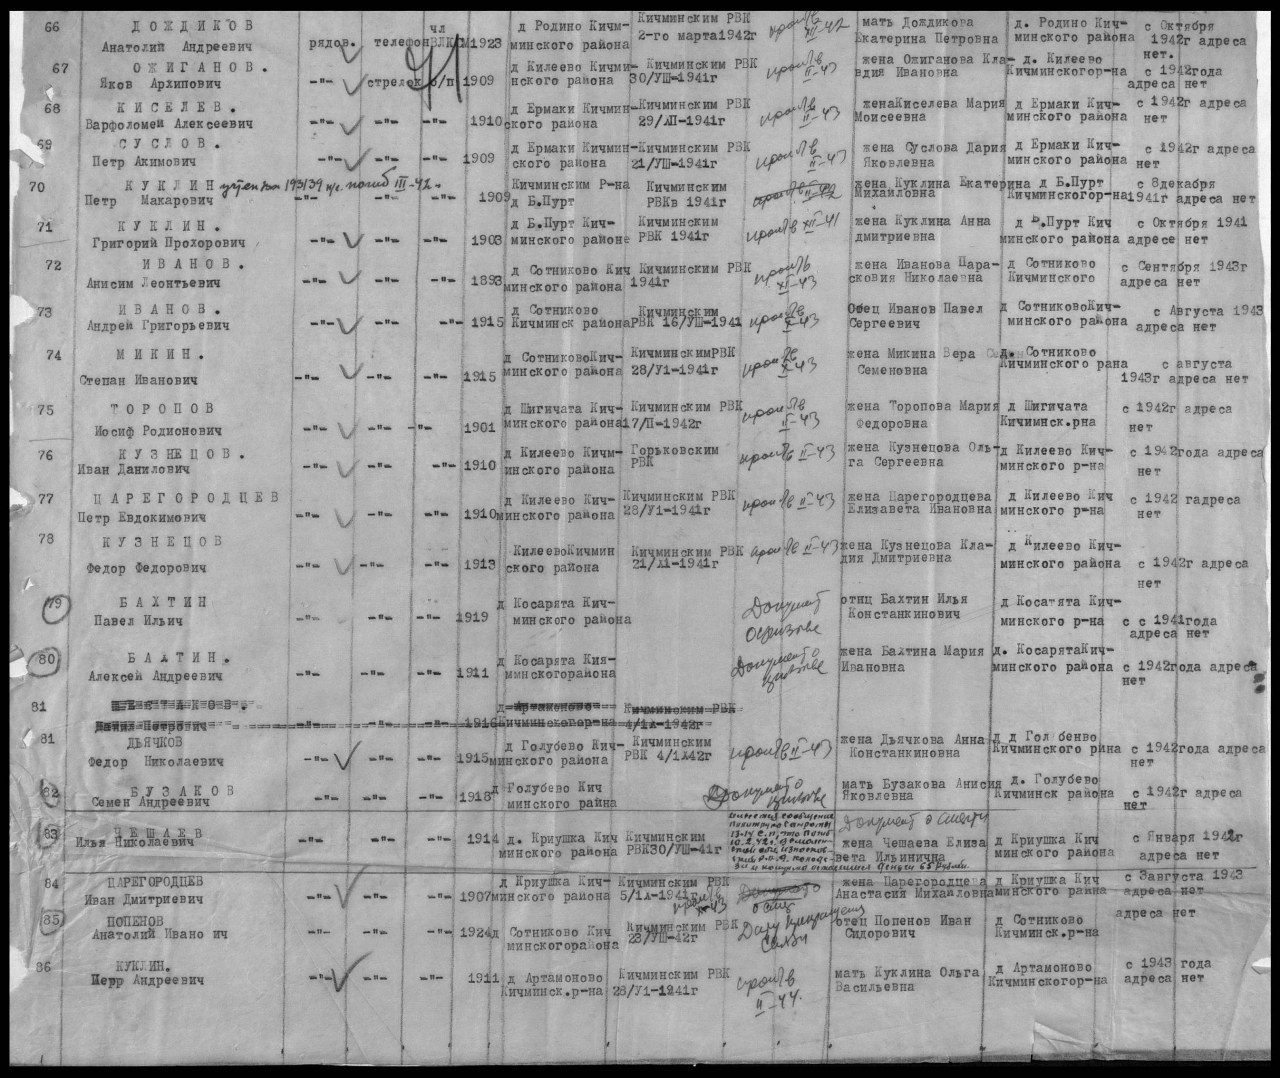 66 ДОЖДИКОВ
Анатолий Андреевич рядов. телефон чл ВЛКСМ 1923 д Родино Кичм-минского района Кичминским РВК 2-го марта1942г проп б/в XII-42 мать Дождикова Екатерина Петровна д. Родино Кич-минского района с Октября 1942г адреса нет.
67 ОЖИГАНОВ.
Яков Архипович -"- стрелек б/п 1909 д Килеево Кичми-нского района Кичминским РВК 30/УШ-1941г проп б/в II-43 жена Ожиганова Кла-вдия Ивановна д. Килеево Кичминскогор-на с 1942года адреса нет
68 КИСЕЛЕВ.
Варфоломей Алексеевич -"- -"- -"- 1910 д Ермаки Кичмин-ского района Кичминским РВК 29/ЛП-1941г проп б/в II-43 женаКиселева Мария Моисеевна д Ермаки Кич-минского района с 1942г адреса нет
69 СУСЛОВ.
Петр Акимович -"- -"- -"- 1909 д Ермаки Кичмин-ского района Кичминским РВК 21/УШ-1941г проп б/в II-43 жена Суслова Дария Яковлевна д Ермаки Кич-минского района с 1942г адреса нет
70 КУКЛИН погиб III-42.
Петр Макарович -"- -"- -"- 1909 Кичминским Р-на д Б.Пурт Кичминским РВКв 1941г жена Куклина Екатерина Михайловна д Б.Пурт Кичминскогор-на с 8декабря 1941г адреса нет
71 КУКЛИН.
Григорий Прохорович -"- -"- -"- 1903 д Б.Пурт Кич-минского районе Кичминским РВК 1941г проп б/в XII-41 жена Куклина Анна дмитриевна д .Пурт Кич минского района с Октября 1941 адресе нет
72 ИВАНОВ.
Анисим Леонтьевич -"- -"- -"- 1893 д Сотниково Кич минского района Кичминским РВК 1941г проп б/в XI-43 жена Иванова Пара-сковия Николаевна д Сотниково Кичминского с Сентября 1943г адреса нет
73 ИВАНОВ.
Андрей Григорьевич -"- -"- -"- 1915 д Сотниково Кичминск района Кичминским РВК 16/УШ-1941 проп б/в X-43 Отец Иванов Павел Сергеевич д СотниковоКич-минского района с Августа 1943 адреса нет
74 МИКИН.
Степан Иванович -"- -"- -"- 1915 д СотниковоКич-минского района КичминскимРВК 28/У1-1941г проп б/в X-43 жена Микина Вера Семеновна д. Сотниково Кичминского рана с августа 1943г адреса нет
75 ТОРОПОВ
Иосиф Родионович -"- -"- -"- 1901 д Шигичата Кич-минского района Кичминским РВК 17/П-1942г проп б/в II-43 жена Торопова Мария Федоровна д Шигичата Кичимнск.рна с 1942г адреса нет
76 КУЗНЕЦОВ.
Иван Данилович -"- -"- -"- 1910 д Килеево Кичм-инского района Горьковским РВК проп б/в II-43 жена Кузнецова Оль-га Сергеевна д Килеево Кич-минского р-на с 1942года адреса нет
77 ЦАРЕГОРОДЦЕВ
Петр Евдокимович -"- -"- -"- 1910 д Килеево Кич-минского района Кичминским РВК 28/У1-1941г проп б/в II-43 жена Царегородцева Елизавета Ивановна д Килеево Кич минского р-на с 1942 гадреса нет
78 КУЗНЕЦОВ
Федор Федорович -"- -"- -"- 1913 КилеевоКичмин ского района Кичминским РВК 21/Л1-1941г проп б/в II-43 жена Кузнецова Кла-дия Дмитриевна д Килеево Кич-минского района с 1942г адреса нет
79 БАХТИН
Павел Ильич -"- -"- -"- 1919 д Косарята Кич-минского района Документ о призыве отнц Бахтин Илья Констанкинович д Косатята Кич-минского р-на с с 1941года адреса нет
80 БАХТИН.
Алексей Андреевич -"- -"- -"- 1911 д Косарята Кия-мминскогорайона Документ о призыве жена Бахтина Мария Ивановна д. КосарятаКич-минского района с 1942года адреса нет
81 Петрович -"- -"- -"- 1916 д Артамоново Кичминскогор-на Кичминским РВК 4/1Х-1942г
81 ДЬЯЧКОВ
Федор Николаевич -"- -"- -"- 1915 д Голубево Кич-минского района Кичминским РВК 4/1Х42г проп б/в II-43 жена Дьячкова Анна Констанкиновна д д Голубенво Кичминского рйна с 1942года адреса нет
82 БУЗАКОВ
Семен Андреевич -"- -"- -"- 1918 д Голубево Кич минского райна Документ о призыве мать Бузакова Анисия Яковлевна д. Голубево Кичминск района с 1942г адреса нет
83 ЧЕШАЕВ
Илья Николаевич -"- -"- -"- 1914 д. Криушка Кич минского района Кичминским РВК30/УШ-41г имеется сообщение политрука что погиб 10.2.42г. Документ о смерти жена Чешаева Елиза вета Ильинична д Криушка Кич минского района с Января 1942г адреса нет
84 ЦАРЕГОРОДЦЕВ
Иван Дмитриевич -"- -"- -"- 1907 д Криушка Кич-минского района Кичминским РВК 5/1Х-1941г проп б/в X-43 жена Царегородцева Анастасия Михайловна д Криушка Кич минского района с 3августа 1943 адреса нет
85 ПОПЕНОВ
Анатолий Ивано ич -"- -"- -"- 1924 д Сотниково Кич минскогорайона Кичминским РВК 23/УШ-42г Дату прекращения связи отец Попенов Иван Сидорович д Сотниково Кичминск.р-на адреса нет
86 КУКЛИН.
Петр Андреевич -"- -"- -"- 1911 д Артамоново Кичминск.р-на Кичминским РВК 28/У1-1941г проп б/в II-44. мать Куклина Ольга Васильевна д Артамоново Кичминскогор-на с 1943 года адреса нет